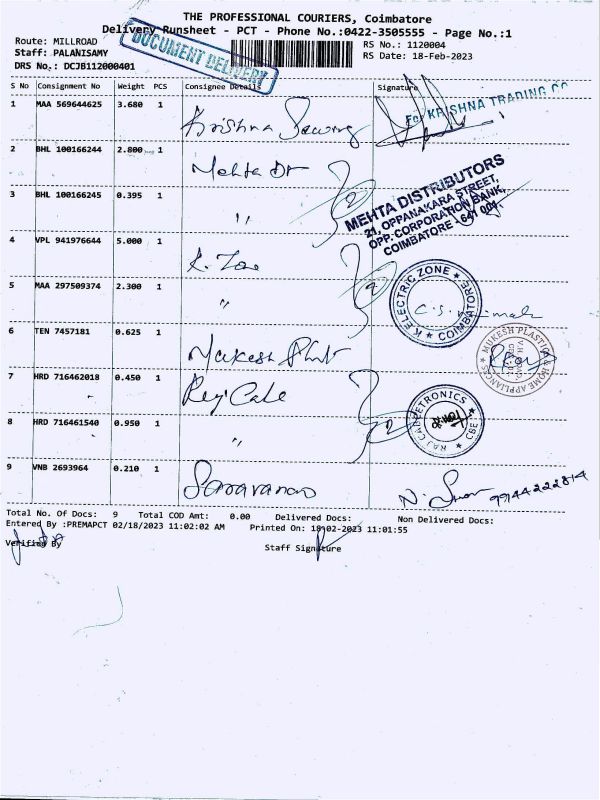 THE PROFESSIONAL COURIERS, Coimbatore
Delivery Runsheet - PCT - Phone No.:0422-3505555 - Page No.:1
Route: MILLROAD
Staff: PALANISAMY
DRS No.: DCJB112000401
DOCUMENT DELIVERY
RS No.: 1120004
RS Date: 18-Feb-2023
S No Consignment No Weight PCS Consignee Details Signature
1 MAA 569644625 3.680 1 Krishna Sewing
For KRISHNA TRADING CO
2 BHL 100166244 2.800 1 Mehta Dr
3 BHL 100166245 0.395 1 "
2
MEHTA DISTRIBUTORS
21, OPPANAKARA STREET,
OPP. CORPORATION BANK,
COIMBATORE - 641 001.
4 VPL 941976644 5.000 1 K. Zone
5 MAA 297509374 2.300 1 "
2
K ELECTRIC ZONE
COIMBATORE
6 TEN 7457181 0.625 1 Mukesh
MUKESH PLASTIC & HOME APPLIANCES
7 HRD 716462018 0.450 1 Raj Cable
8 HRD 716461540 0.950 1 "
2
CBE
9 VNB 2693964 0.210 1 Saravanan
9944222814
Total No. Of Docs: 9 Total COD Amt: 0.00 Delivered Docs: Non Delivered Docs:
Entered By :PREMAPCT 02/18/2023 11:02:02 AM Printed On: 18-02-2023 11:01:55
Verified By
Staff Signature